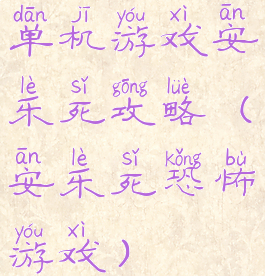 dān jī yóu xì ān
单机游戏安
lè sǐ gōng lüè
乐死攻略（
ān lè sǐ kǒng bù
安乐死恐怖
yóu xì
游戏）